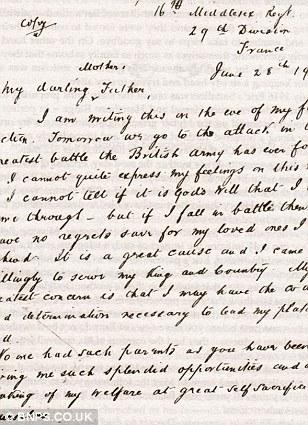 copy
16th Middlesex Regt.
29th Division
France
June 28th 19
Mother,
my darling Father,
I am writing this on the eve of my f
action. Tomorrow we go to the attack in
reatest battle the British Army has ever fo
I cannot quite express my feelings on this
I cannot tell if it is God's will that I
me through - but if I fall in battle then
ave no regrets save for my loved ones I
hind. It is a great cause and I came
illingly to serve my King and Country. My
eatest concern is that I may have the cou
d determination necessary to lead my plato
No one had such parents as you have been
iving me such splendid opportunities and
king of my welfare at great self sacrific
© BNPS.CO.UK